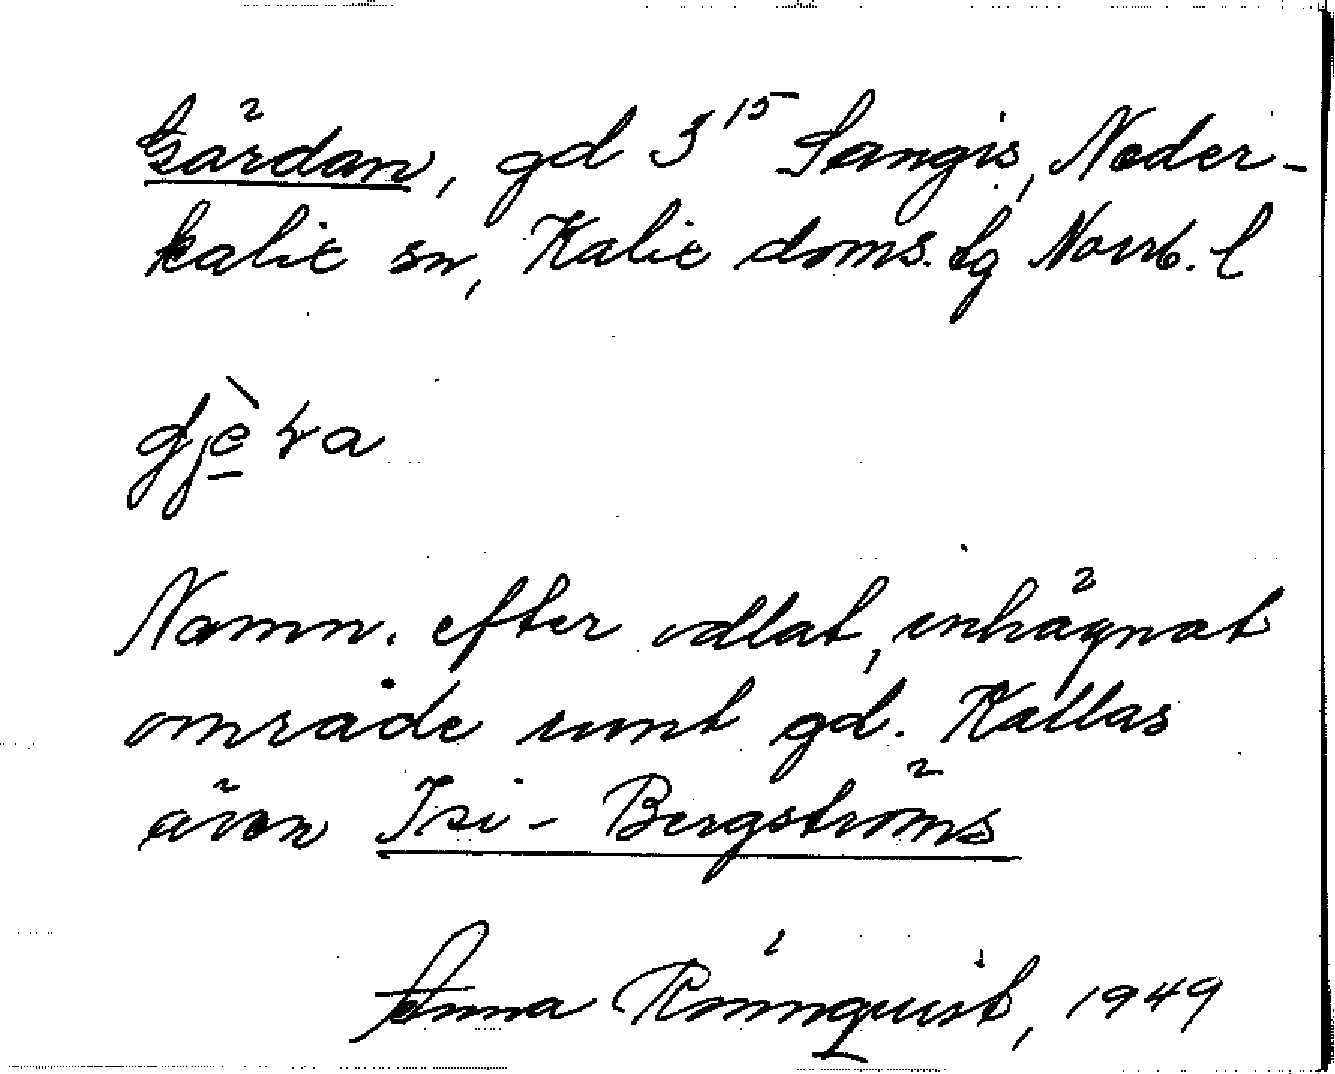 Gärdan, gd 3¹⁵ Sangis, Neder-
kalix sn, Kalix doms. lg Norrb. l
Namn. efter odlat, inhägnat
område runt gd. Kallas
även Isi-Bergströms
Anna Rönnquist, 1949